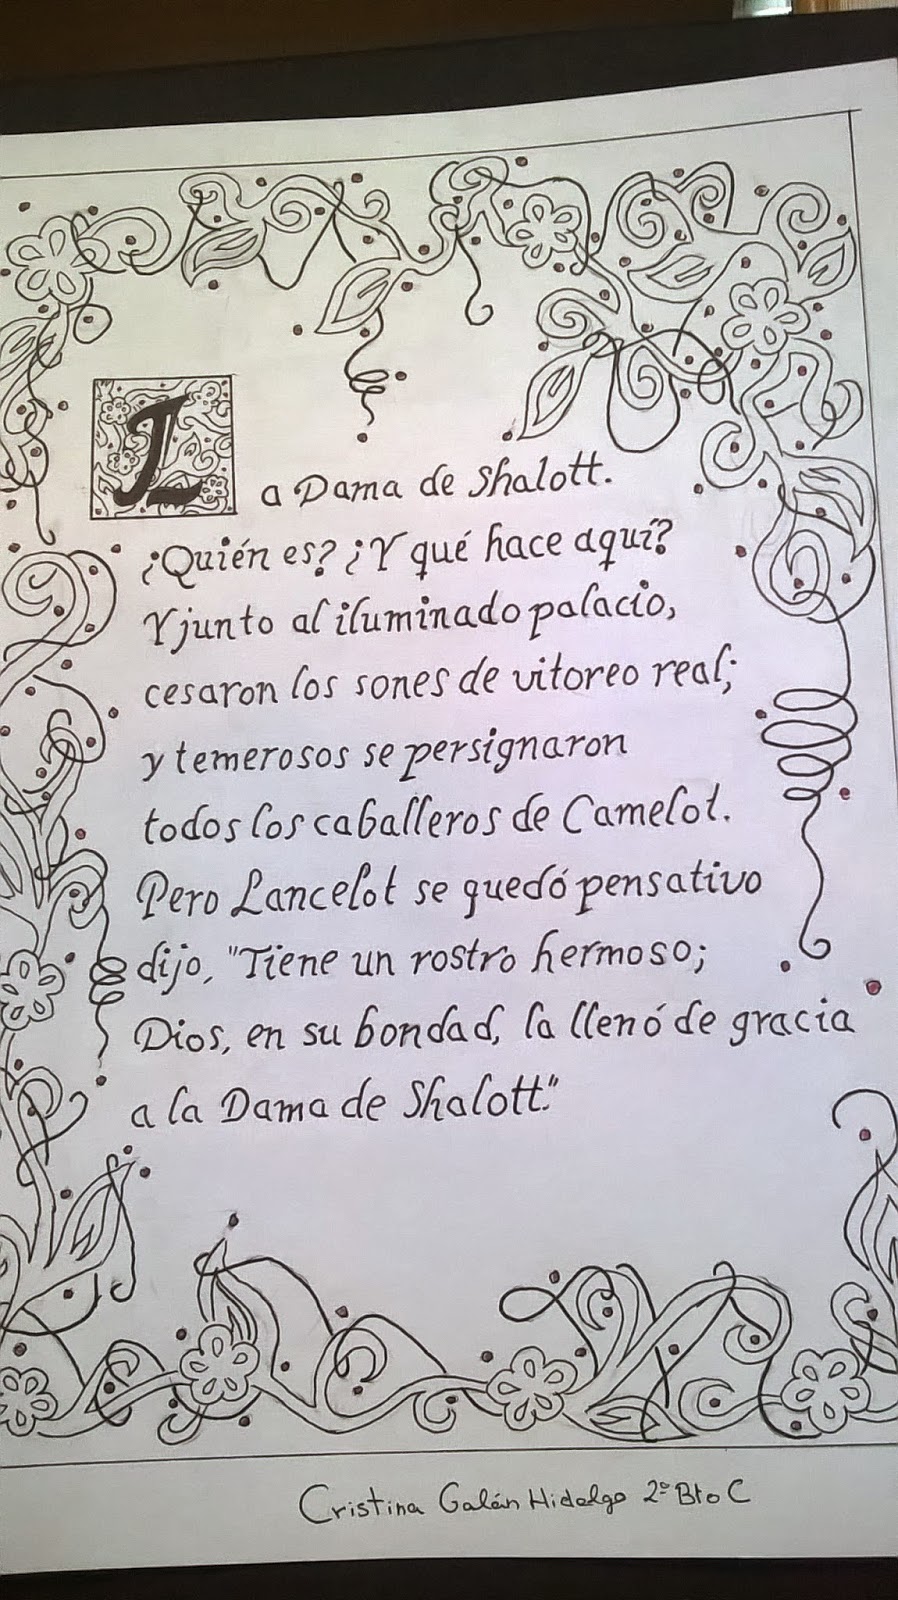 La Dama de Shalott.
¿Quién es? ¿Y qué hace aquí?
Y junto al iluminado palacio,
cesaron los sones de vitoreo real;
y temerosos se persignaron
todos los caballeros de Camelot.
Pero Lancelot se quedó pensativo
dijo, "Tiene un rostro hermoso;
Dios, en su bondad, la llenó de gracia
a la Dama de Shalott."
Cristina Galán Hidalgo 2º Bto C